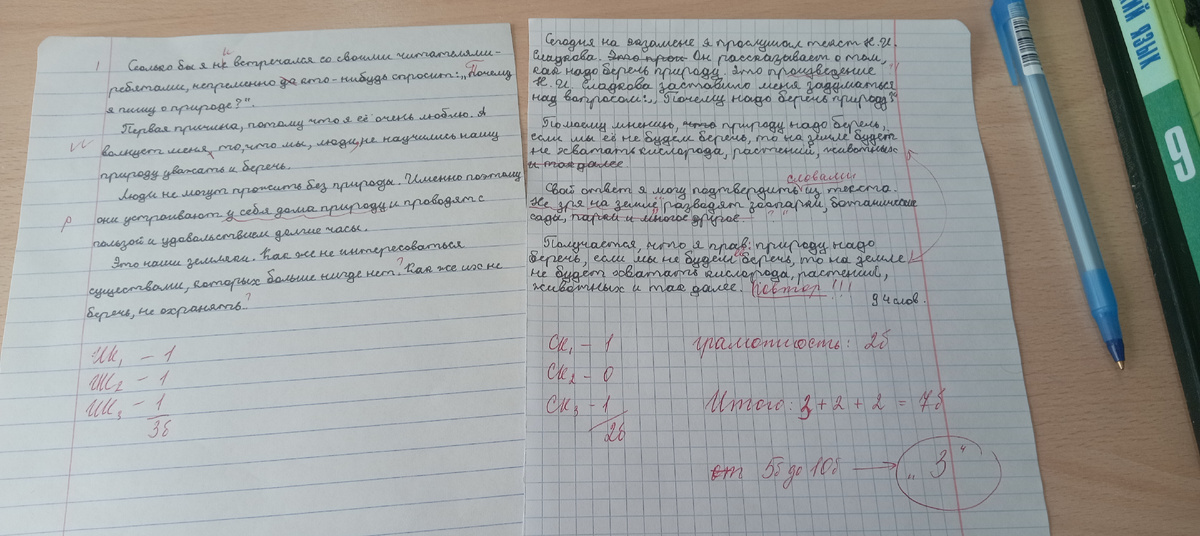 1 Сколько бы я ни встречался со своими читателями-
ребятами, непременно да кто-нибудь спросит: „Почему
я пишу о природе?".
Первая причина, потому что я её очень люблю. А
волнует меня, то, что мы, люди, не научились нашу
природу уважать и беречь.
Люди не могут прожить без природы. Именно поэтому
они устраивают у себя дома природу и проводят с
пользой и удовольствием долгие часы.
Это наши земляки. Как же не интересоваться
существами, которых больше нигде нет? Как же их не
беречь, не охранять?
V
Р
ИК1 - 1
ИК2 - 1
ИК3 - 1
3б
Сегодня на экзамене я прослушал текст Н.И.
Сладкова. Это прои Он рассказывает о том,
как надо беречь природу. Это произведение
Н.И Сладкова заставило меня задуматься
над вопросом: „Почему надо беречь природу?"
Помоему мнению, что природу надо беречь,
если мы её не будем беречь, то на земле будет
не хватать кислорода, растений, животных
и так далее
словами
Свой ответ я могу подтвердить из текста.
Не зря на земле разводят зоопарки, ботанические
сада, парки и многое другое.
Получается, что я прав: природу надо
беречь, если мы не будем её беречь, то на земле
не будет хватать кислорода, растений,
животных и так далее. Повтор!!!
94 слов.
СК1 - 1
СК2 - 0
СК3 - 1
2б
грамотность: 2б
Итого: 3 + 2 + 2 = 7б
от 5б до 10б → „3"
ИЙ ЯЗЫК
9